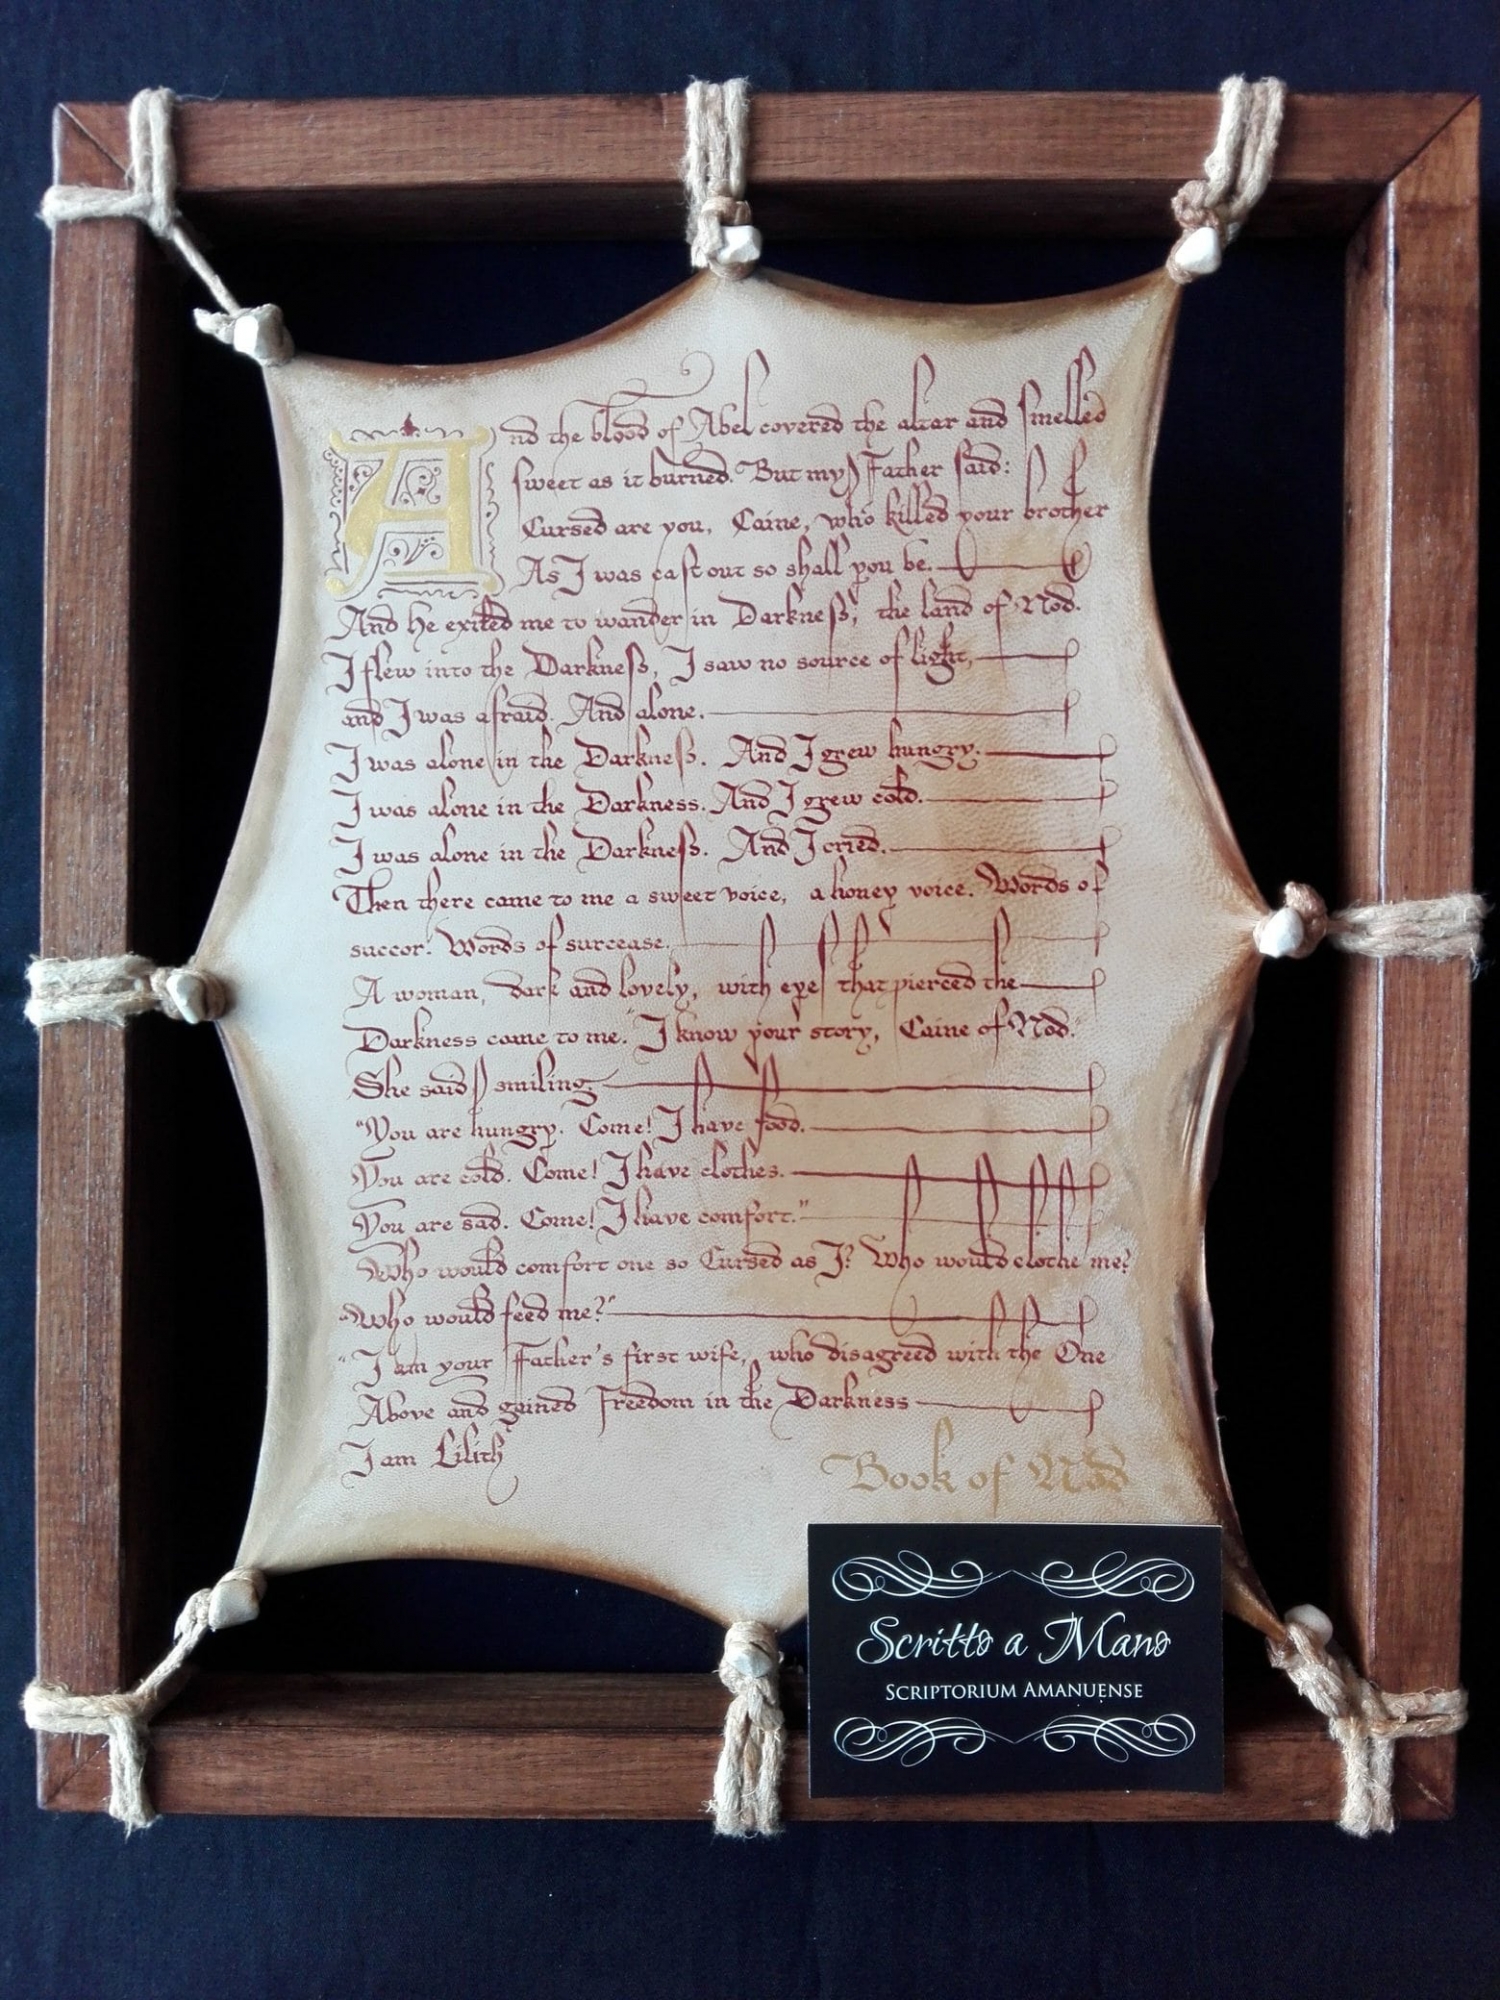 And the blood of Abel covered the altar and smelled
sweet as it burned. But my Father said:
Cursed are you, Caine, who killed your brother
As I was cast out so shall you be.
And he exiled me to wander in Darkness, the land of Nod.
I flew into the Darkness, I saw no source of light,
and I was afraid. And alone.
I was alone in the Darkness. And I grew hungry.
I was alone in the Darkness. And I grew cold.
I was alone in the Darkness. And I cried.
Then there came to me a sweet voice, a honey voice. Words of
succor. Words of surcease.
A woman, dark and lovely, with eyes that pierced the
Darkness came to me. "I know your story, Caine of Nod."
She said smiling.
"You are hungry. Come! I have food.
You are cold. Come! I have clothes.
You are sad. Come! I have comfort."
Who would comfort one so Cursed as I? Who would clothe me?
Who would feed me?"
"I am your Father's first wife, who disagreed with the One
Above and gained Freedom in the Darkness
I am Lilith"
Book of Nod
Scritto a Mano
SCRIPTORIUM AMANUENSE